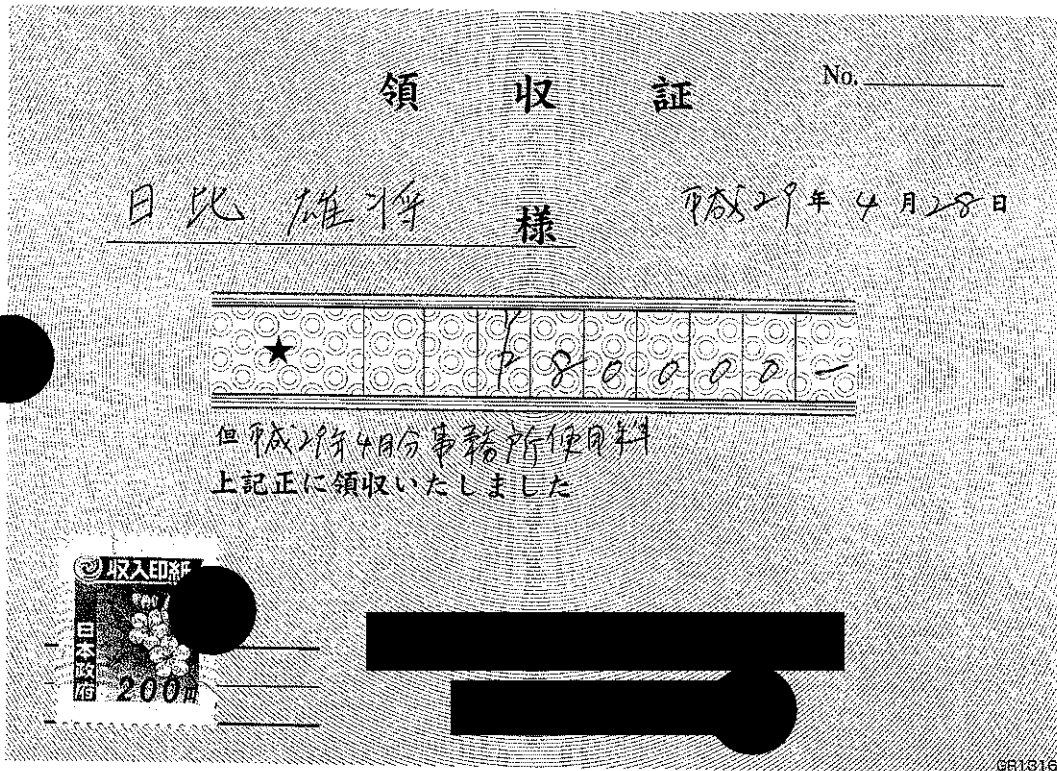 領収証
No.
日比 雄将 様
平成29年4月28日
★ ¥80000-
但 平成29年4月分事務所使用料
上記正に領収いたしました
収入印紙
日本政府
200円
GR1316